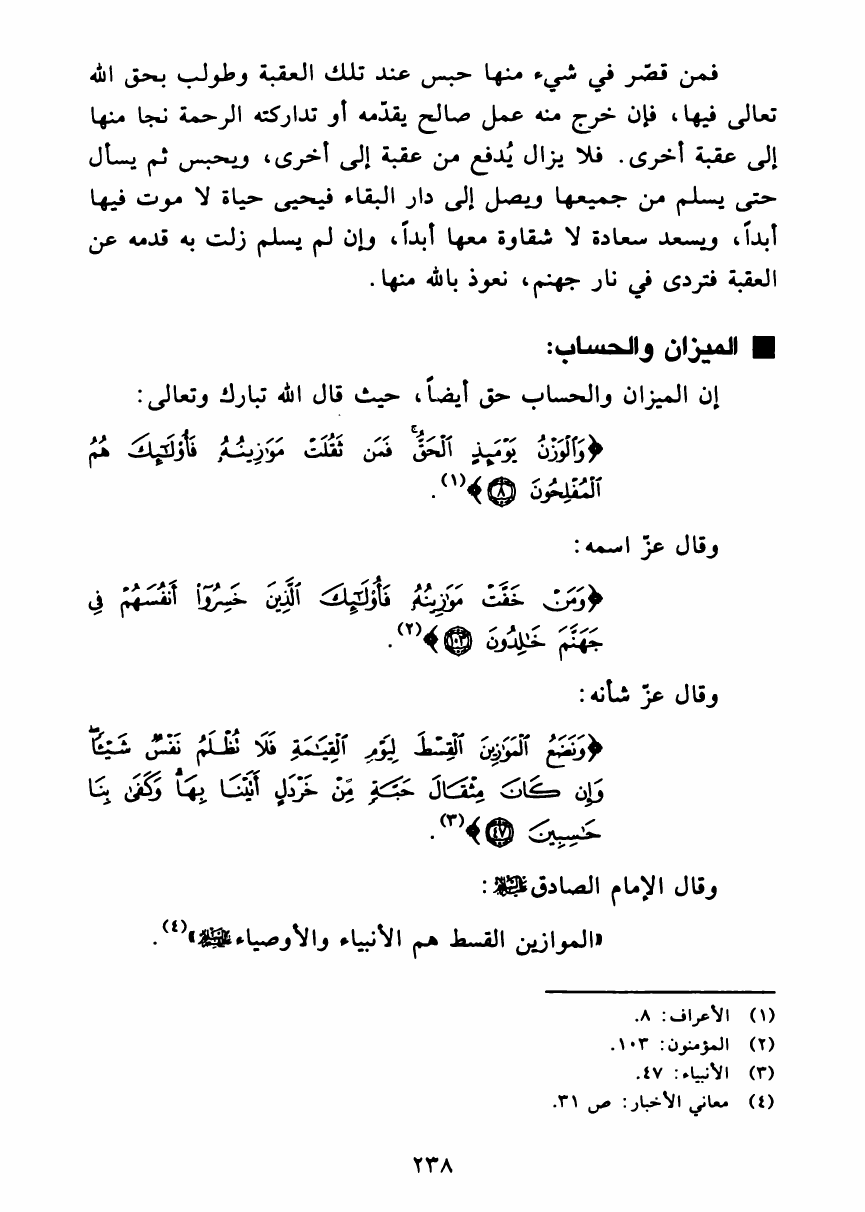 فمن قصّر في شيء منها حبس عند تلك العقبة وطولب بحق الله
تعالى فيها، فإن خرج منه عمل صالح يقدّمه أو تداركته الرحمة نجا منها
إلى عقبة أخرى. فلا يزال يُدفع من عقبة إلى أخرى، ويحبس ثم يسأل
حتى يسلم من جميعها ويصل إلى دار البقاء فيحيى حياة لا موت فيها
أبداً، ويسعد سعادة لا شقاوة معها أبداً، وإن لم يسلم زلت به قدمه عن
العقبة فتردى في نار جهنم، نعوذ بالله منها.
■ الميزان والحساب:
إن الميزان والحساب حق أيضاً، حيث قال الله تبارك وتعالى:
﴿وَٱلْوَزْنُ يَوْمَئِذٍ ٱلْحَقُّ ۚ فَمَن ثَقُلَتْ مَوَٰزِينُهُۥ فَأُو۟لَـٰٓئِكَ هُمُ
ٱلْمُفْلِحُونَ ٨﴾(١).
وقال عزّ اسمه:
﴿وَمَنْ خَفَّتْ مَوَٰزِينُهُۥ فَأُو۟لَـٰٓئِكَ ٱلَّذِينَ خَسِرُوٓا۟ أَنفُسَهُمْ فِى
جَهَنَّمَ خَـٰلِدُونَ ١٠٣﴾(٢).
وقال عزّ شأنه:
﴿وَنَضَعُ ٱلْمَوَٰزِينَ ٱلْقِسْطَ لِيَوْمِ ٱلْقِيَـٰمَةِ فَلَا تُظْلَمُ نَفْسٌ شَيْـًٔا ۖ
وَإِن كَانَ مِثْقَالَ حَبَّةٍ مِّنْ خَرْدَلٍ أَتَيْنَا بِهَا ۗ وَكَفَىٰ بِنَا
حَـٰسِبِينَ ٤٧﴾(٣).
وقال الإمام الصادق:
«الموازين القسط هم الأنبياء والأوصياء»(٤).
(١) الأعراف: ٨.
(٢) المؤمنون: ١٠٣.
(٣) الأنبياء: ٤٧.
(٤) معاني الأخبار: ص ٣١.
٢٣٨